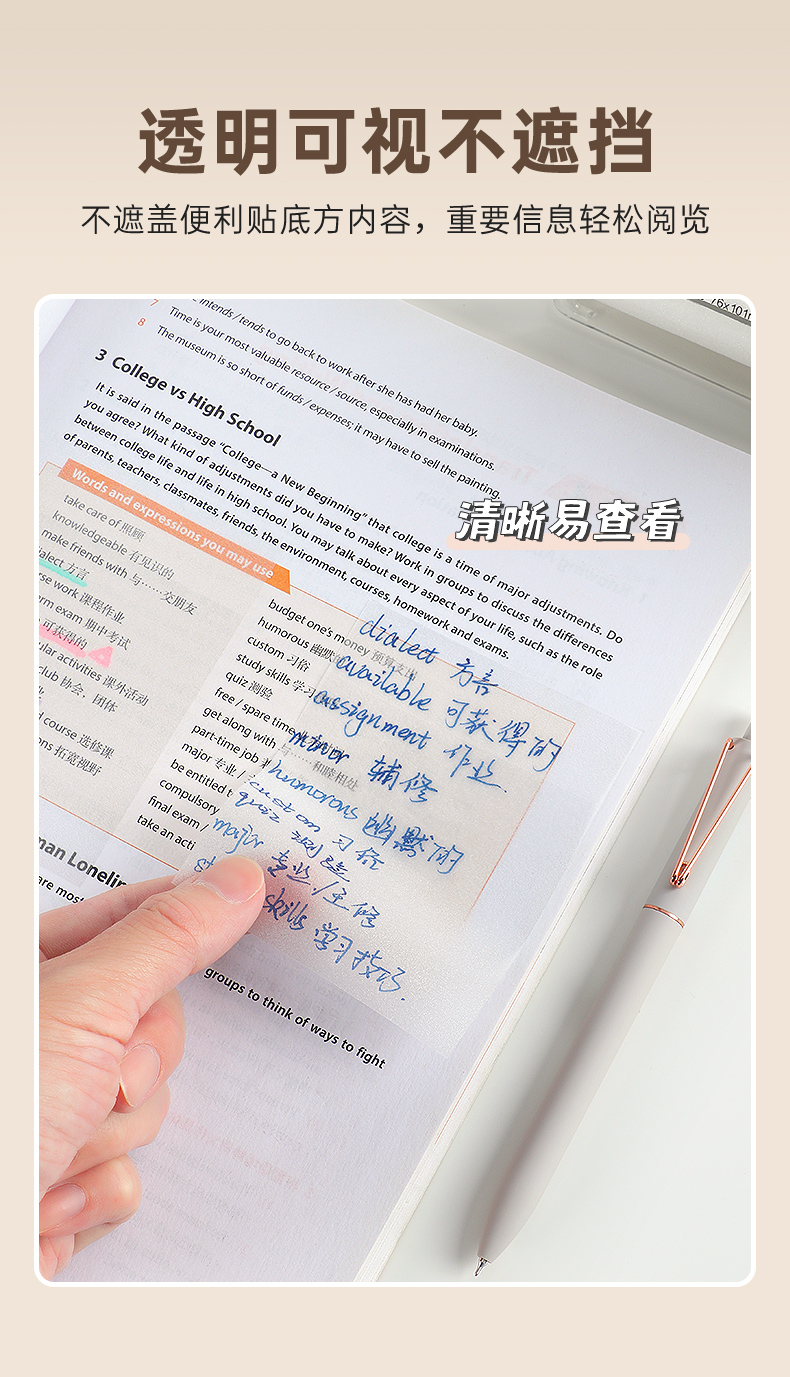 透明可视不遮挡
不遮盖便利贴底方内容，重要信息轻松阅览
76x101
7 intends / tends to go back to work after she has had her baby.
8 Time is your most valuable resource / source, especially in examinations.
The museum is so short of funds / expenses; it may have to sell the painting.
3 College vs High School
清晰易查看
It is said in the passage “College—a New Beginning” that college is a time of major adjustments. Do
you agree? What kind of adjustments did you have to make? Work in groups to discuss the differences
between college life and life in high school. You may talk about every aspect of your life, such as the role
of parents, teachers, classmates, friends, the environment, courses, homework and exams.
Words and expressions you may use
take care of 照顾
knowledgeable 有见识的
make friends with 与……交朋友
方言
work 课程作业
exam 期中考试
可获得的
activities 课外活动
club 协会，团体
course 选修课
拓宽视野
budget one's money 预算支出
humorous 幽默
custom 习俗
study skills 学习
quiz 测验
free / spare time
get along with 与……和睦相处
part-time job
major 专业 /
be entitled t
compulsory
final exam /
take an acti
dialect 方言
available 可获得的
assignment 作业
minor 辅修
humorous 幽默的
custom 习俗
quiz 测验
major 专业/主修
skills 学习技巧.
man Lonelin
are most
groups to think of ways to fight